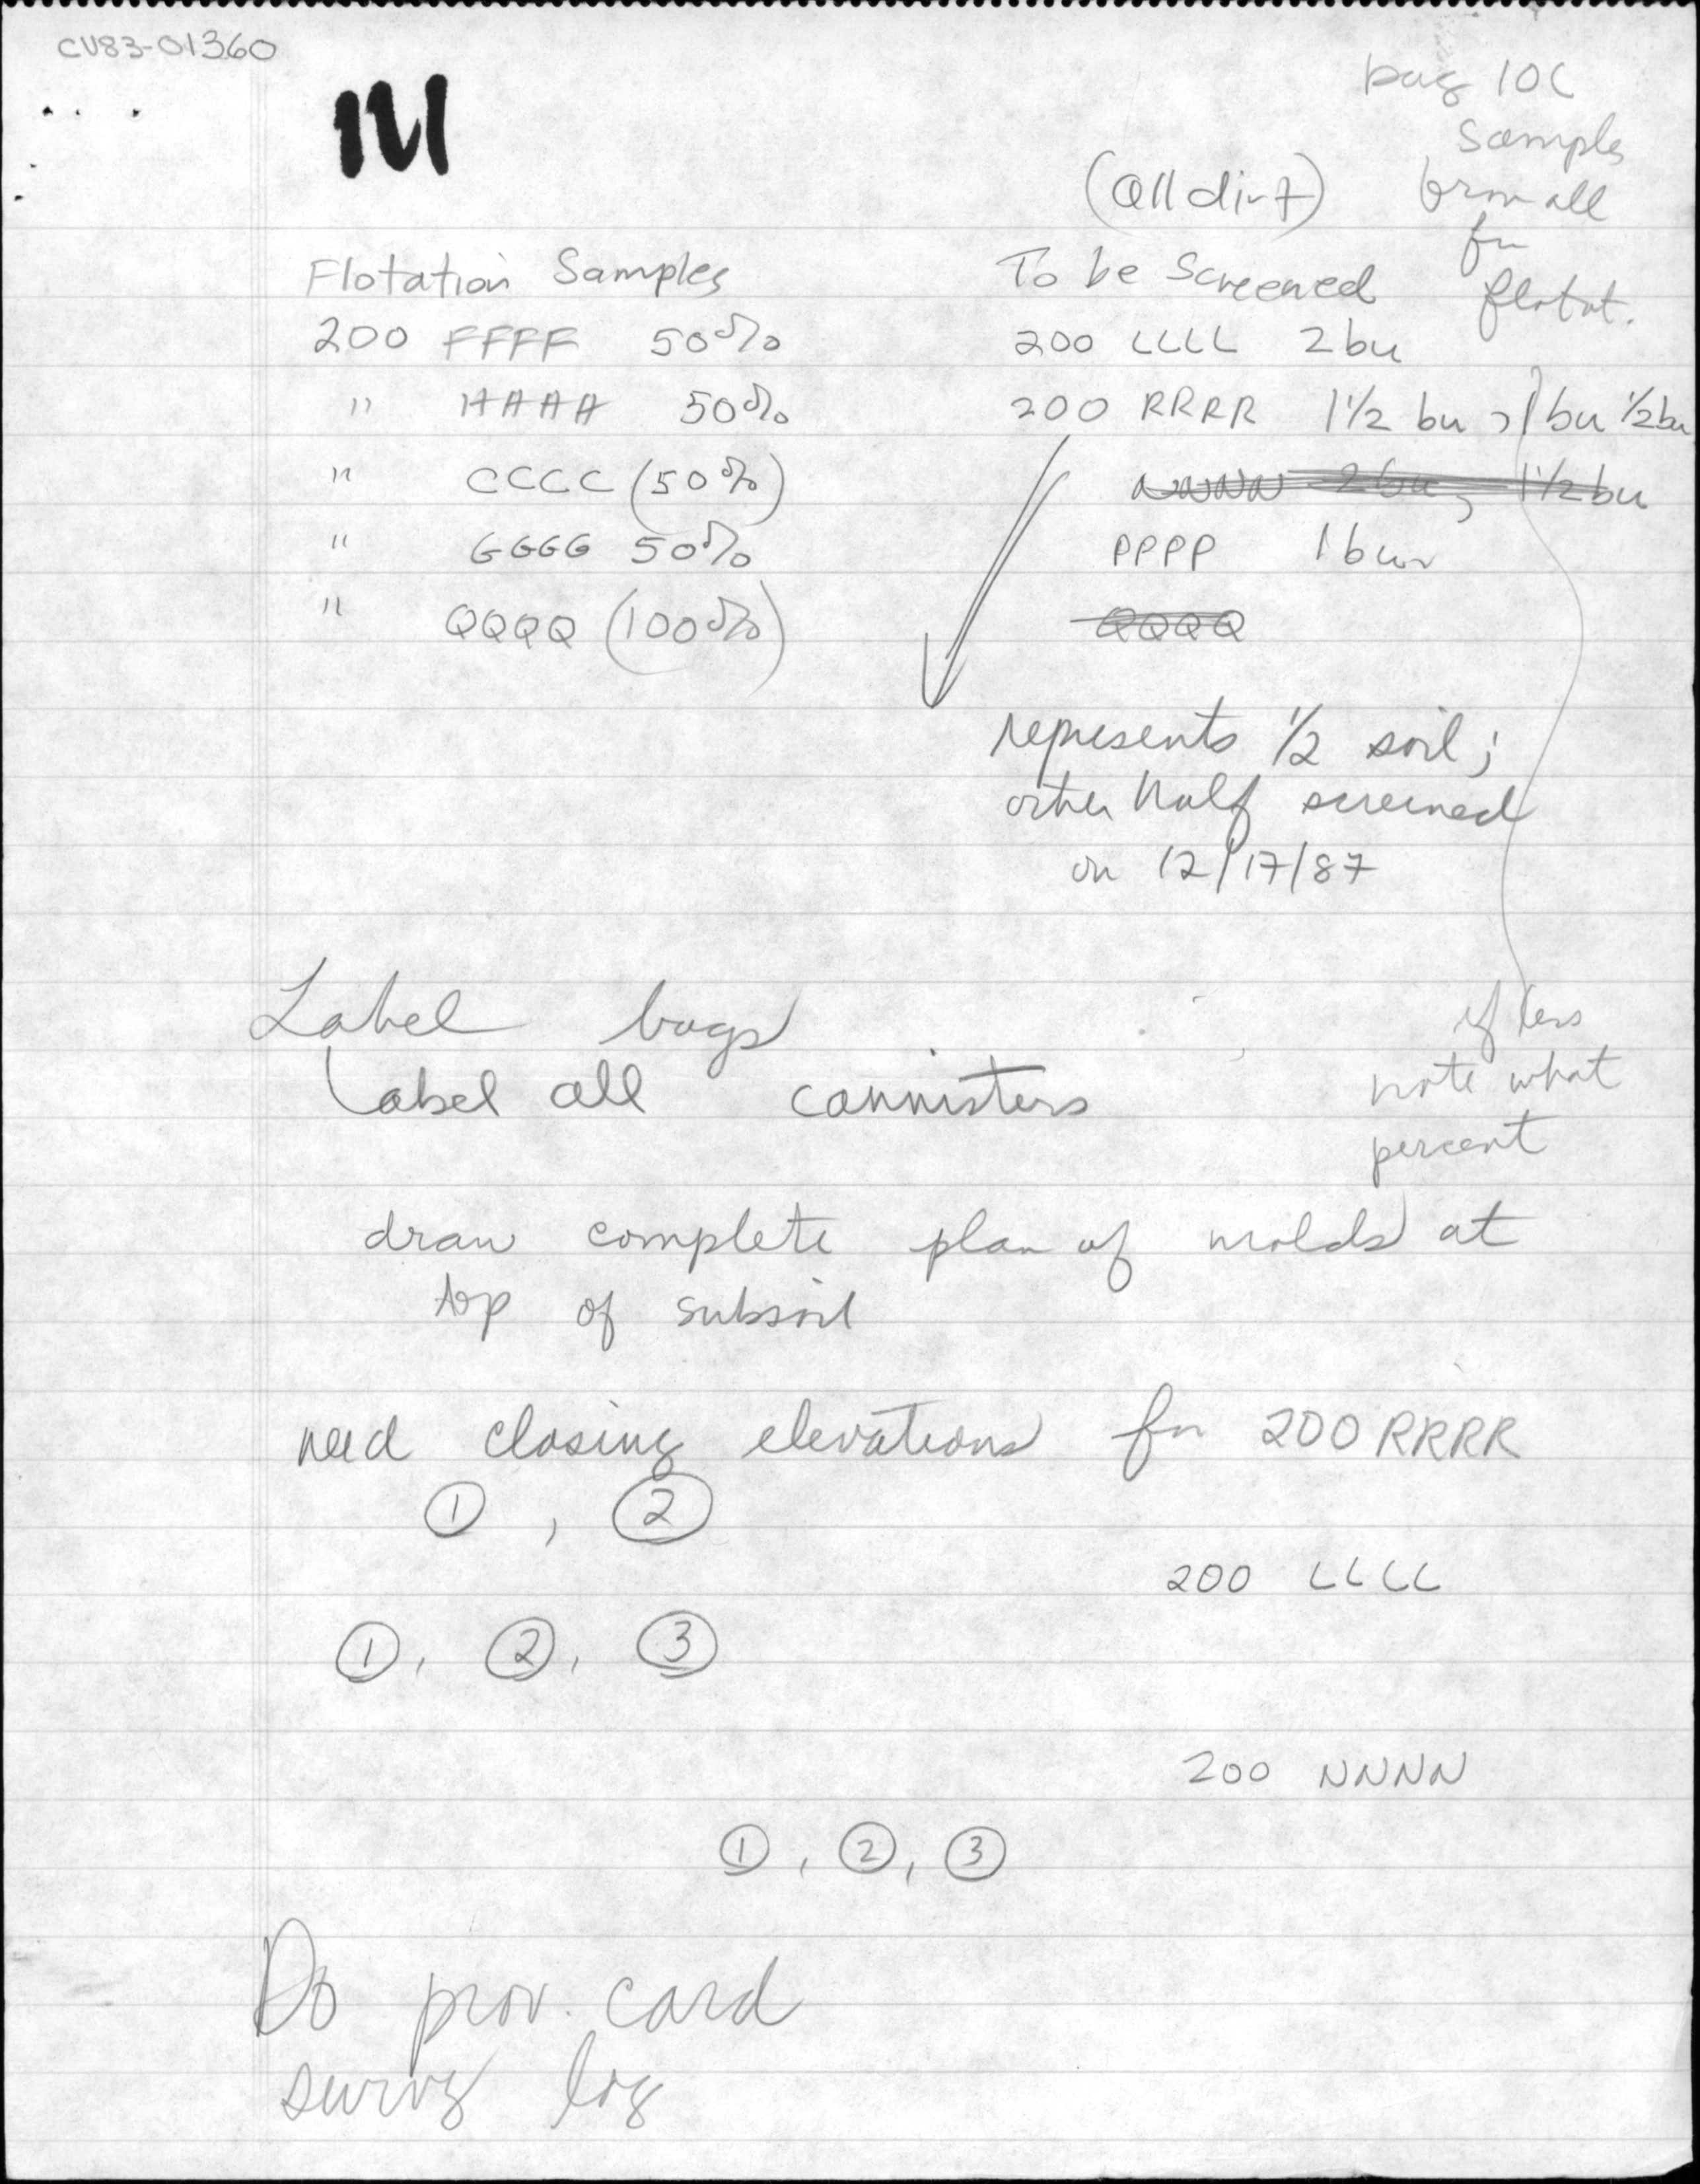 CV83-01360
bag 10L
Samples
from all
for
flotat.
(all dirt)
Flotation Samples
200 FFFF 50%
" AAAA 50%
" CCCC (50%)
" GGGG 50%
" QQQQ (100%)
To be Screened
200 LLLL 2bu
200 RRRR 1 1/2 bu, 1 bu 1/2 bu
NNNN 2bu, 1 1/2 bu
PPPP 1bu
QQQQ
represents 1/2 soil;
other half screened
on 12/17/87
Label bags
Label all cannisters
if less
note what
percent
draw complete plan of molds at
top of subsoil
need closing elevations for 200 RRRR
①, ②
200 LLLL
①, ②, ③
200 NNNN
①, ②, ③
Do prov. card
survey log